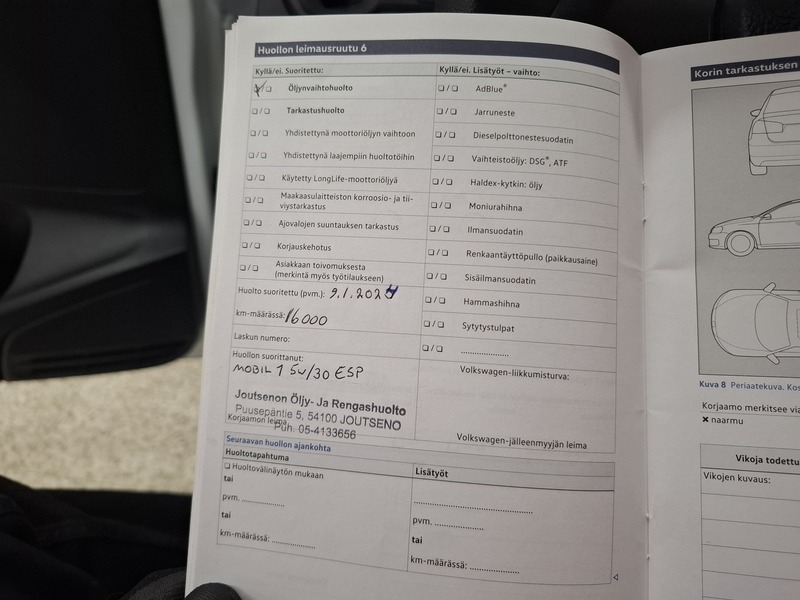 Huollon leimausruutu 6
Kyllä/ei. Suoritettu:
❏/❏ Öljynvaihtohuolto
❏/❏ Tarkastushuolto
❏/❏ Yhdistettynä moottoriöljyn vaihtoon
❏/❏ Yhdistettynä laajempiin huoltotöihin
❏/❏ Käytetty LongLife-moottoriöljyä
❏/❏ Maakaasulaitteiston korroosio- ja tii-
viystarkastus
❏/❏ Ajovalojen suuntauksen tarkastus
❏/❏ Korjauskehotus
❏/❏ Asiakkaan toivomuksesta
(merkintä myös työtilaukseen)
Huolto suoritettu (pvm.): 9.1.2024
km-määrässä: 16000
Laskun numero:
Huollon suorittanut:
MOBIL 1 5W/30 ESP
Joutsenon Öljy- Ja Rengashuolto
Puusepäntie 5, 54100 JOUTSENO
Korjaamon leima
Puh. 05-4133656
Kyllä/ei. Lisätyöt – vaihto:
❏/❏ AdBlue®
❏/❏ Jarruneste
❏/❏ Dieselpolttonestesuodatin
❏/❏ Vaihteistoöljy: DSG®, ATF
❏/❏ Haldex-kytkin: öljy
❏/❏ Moniurahihna
❏/❏ Ilmansuodatin
❏/❏ Renkaantäyttöpullo (paikkausaine)
❏/❏ Sisäilmansuodatin
❏/❏ Hammashihna
❏/❏ Sytytystulpat
❏/❏ ....................
Volkswagen-liikkumisturva:
Volkswagen-jälleenmyyjän leima
Seuraavan huollon ajankohta
Huoltotapahtuma
❏ Huoltovälinäytön mukaan
tai
pvm. ................
tai
km-määrässä: ................
Lisätyöt
............................................
pvm. ..................
tai
km-määrässä: ..................
Korin tarkastuksen
Kuva 8 Periaatekuva.
Korjaamo merkitsee
✘ naarmu
Vikoja
Vikojen kuvaus: